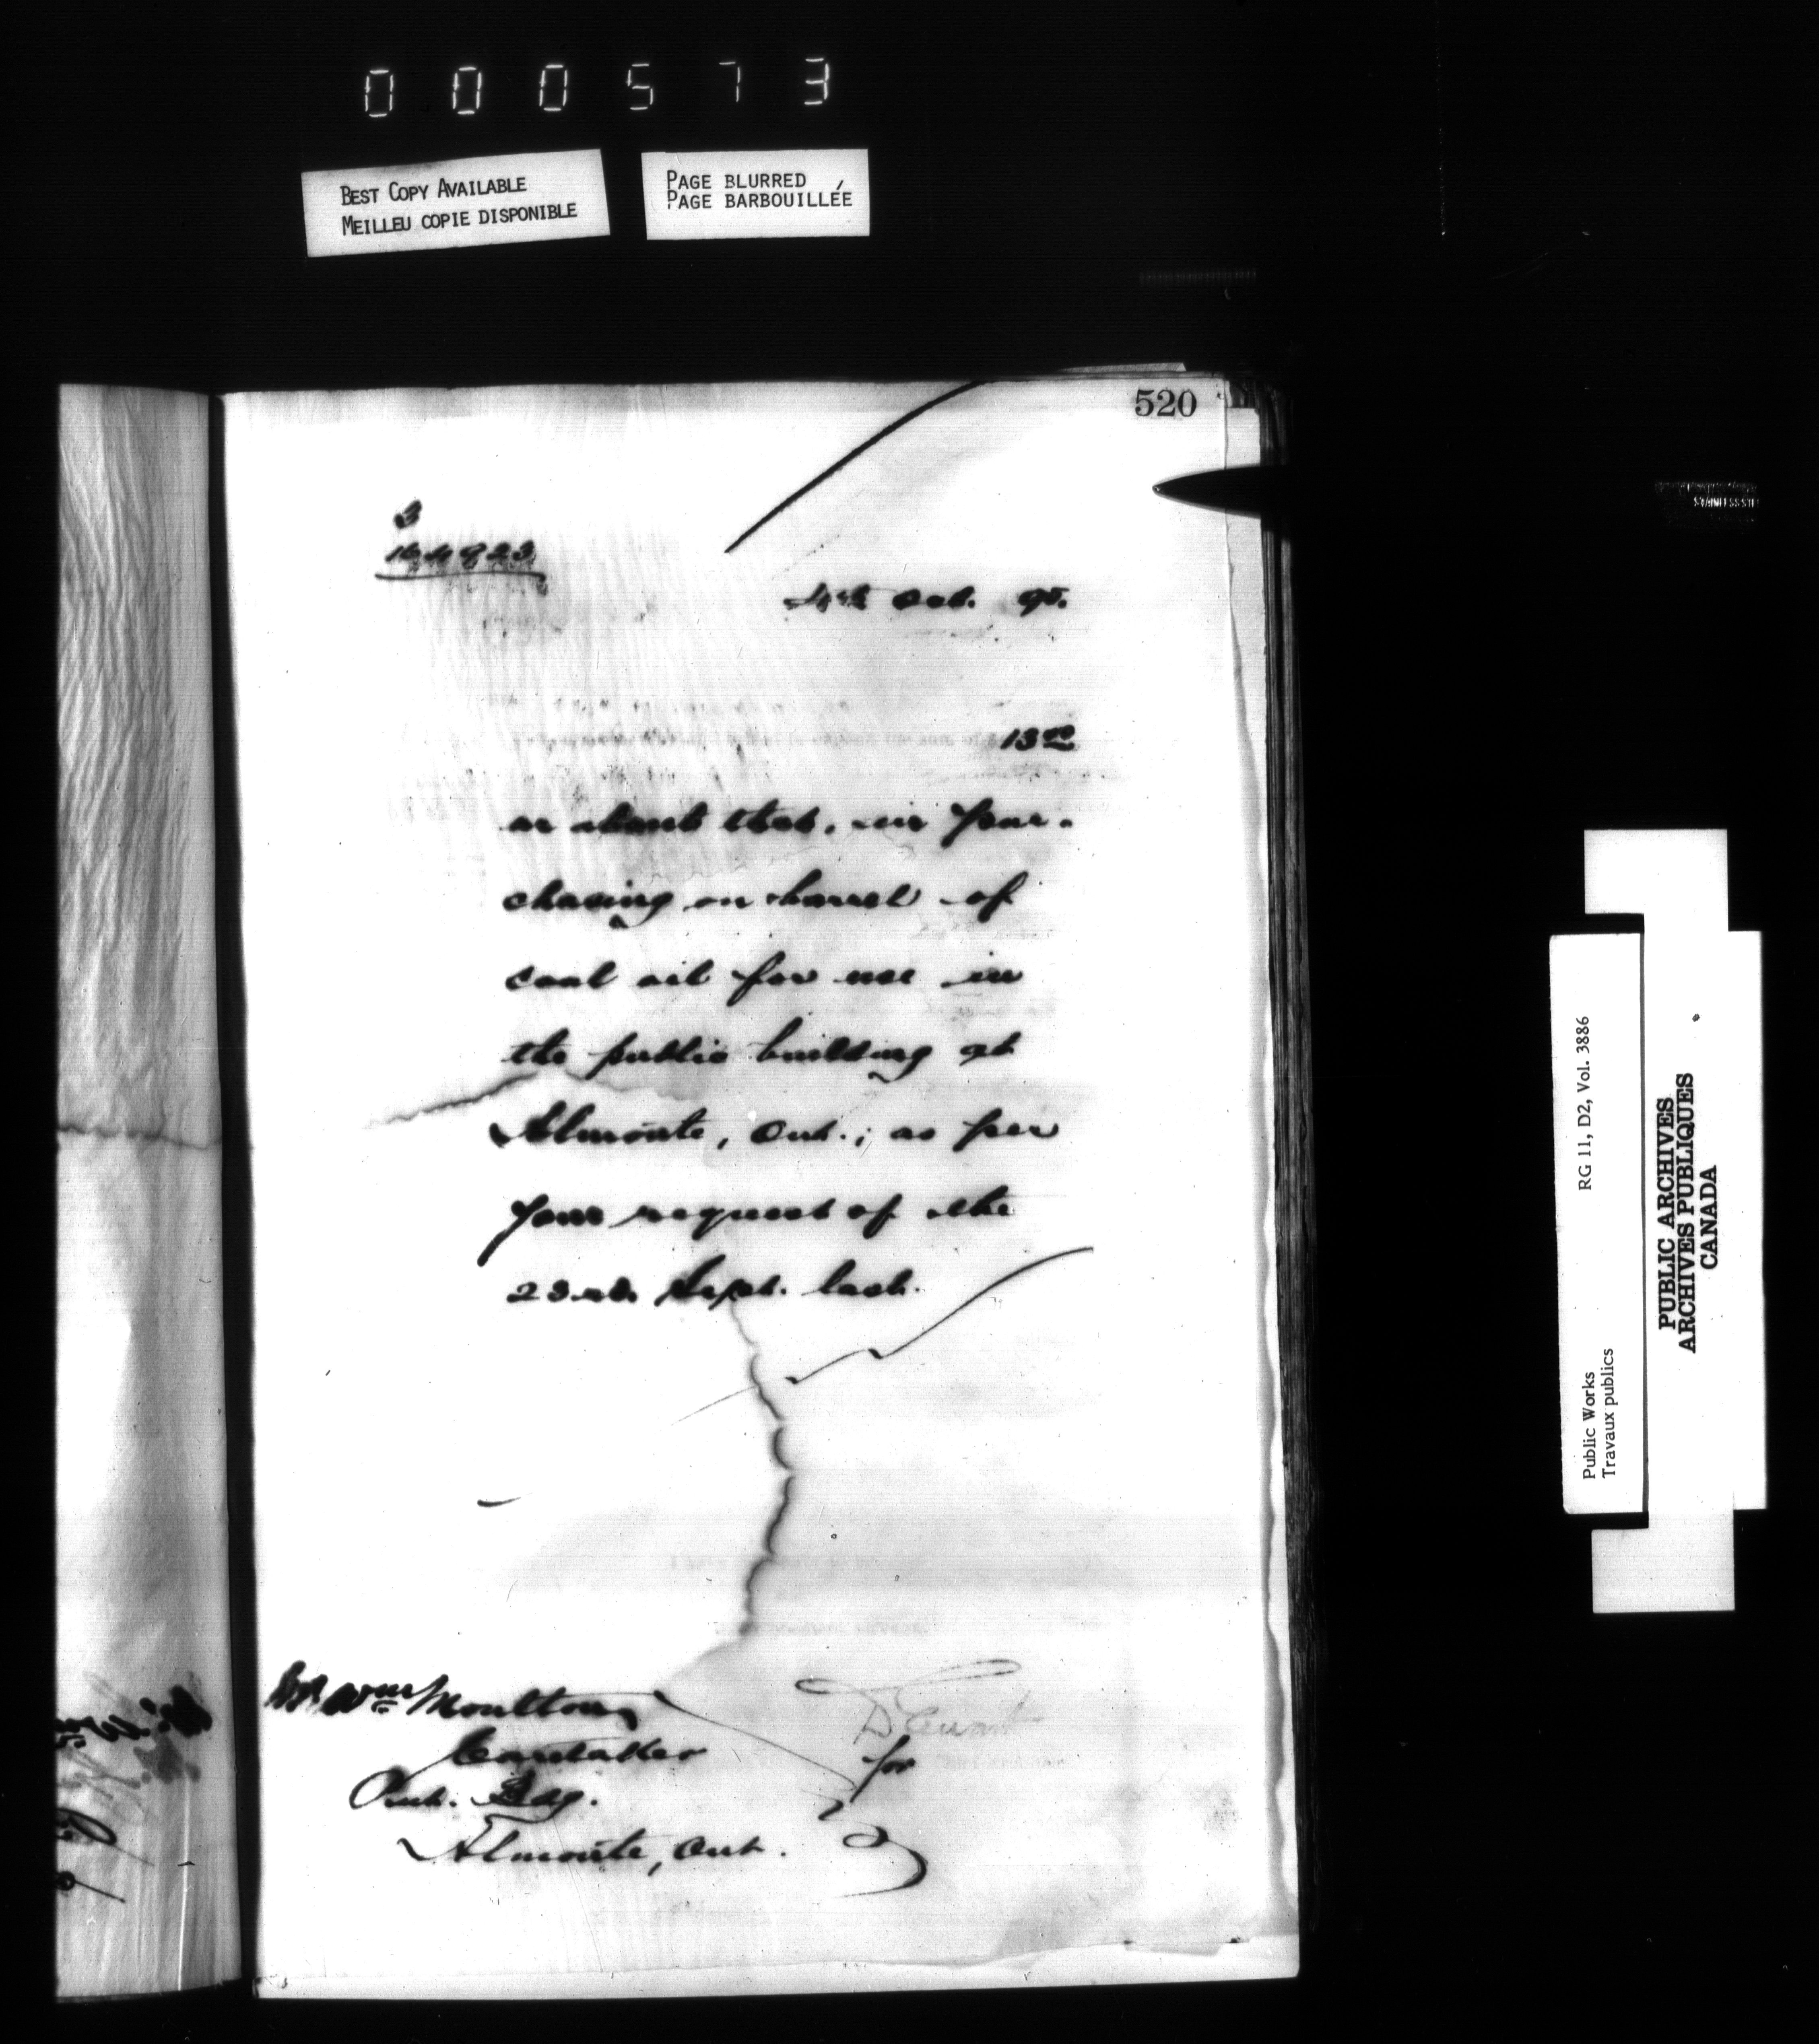 000573
BEST COPY AVAILABLE
MEILLEU COPIE DISPONIBLE
PAGE BLURRED
PAGE BARBOUILLÉE
520
3
4th Oct. 95.
13 00
or about that, in pur-
chasing on barrel of
coal oil for use in
the public building at
Almonte, Ont.; as per
your request of the
23rd. Sept. last.
Wm Moulton
Caretaker
Pub. Bdg.
Almonte, Ont.
D Ewart
for
Public Works
Travaux publics
RG 11, D2, Vol. 3886
PUBLIC ARCHIVES
ARCHIVES PUBLIQUES
CANADA